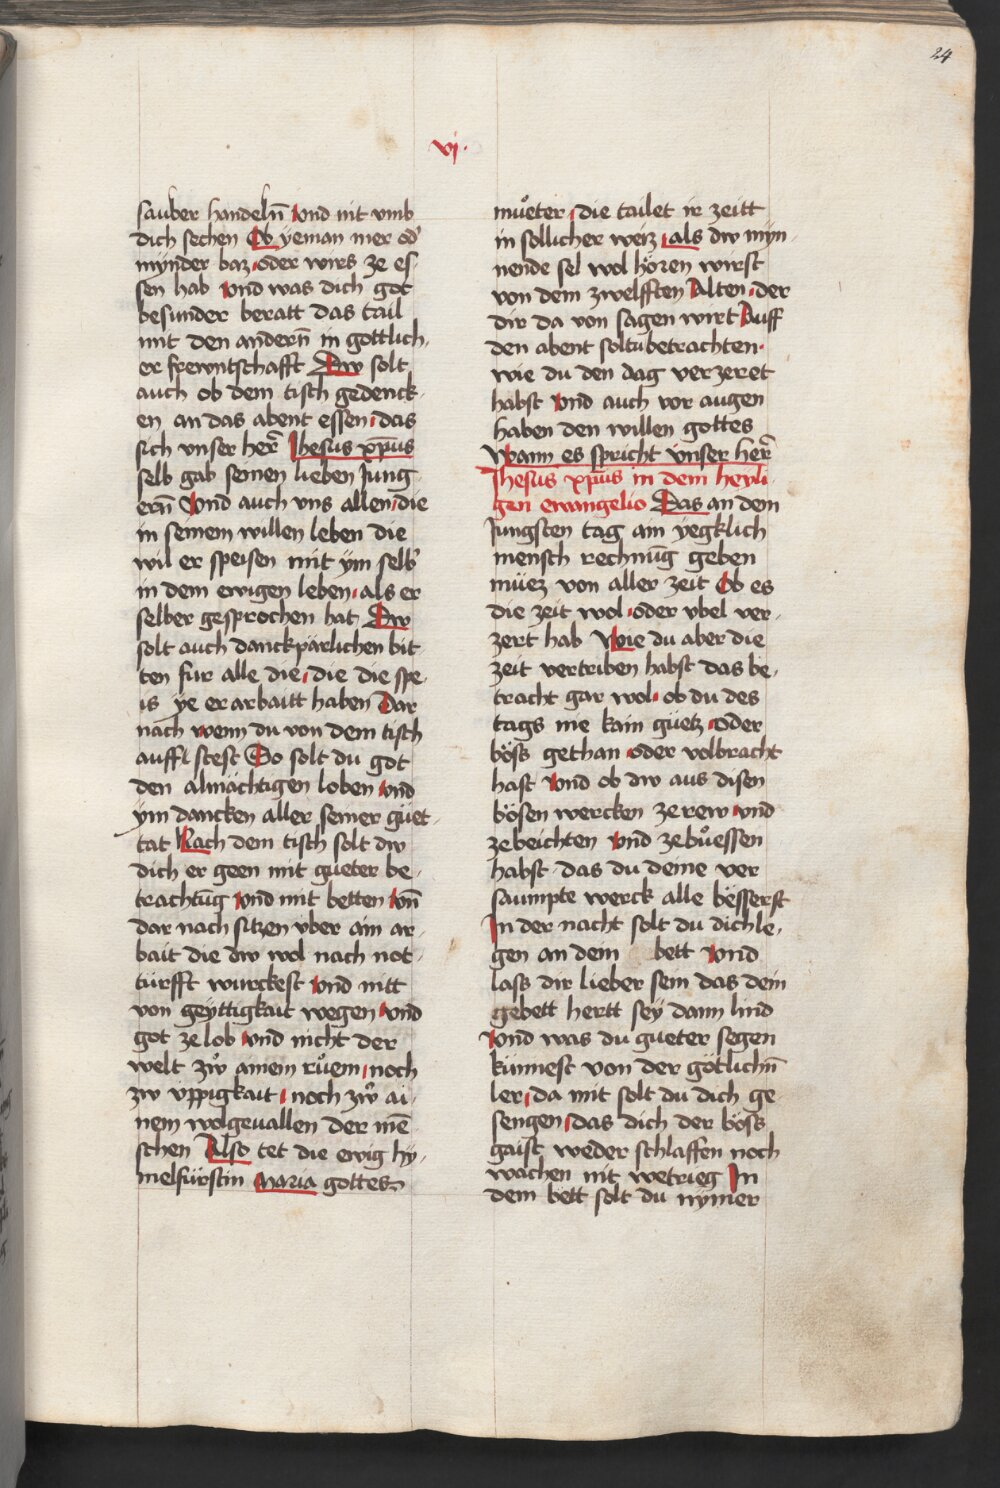 24
vj.
sauber handelñ Vnd nit vmb
dich sechen Ob yeman mer od'
mynder baz oder wirs ze es-
sen hab Vnd was dich got
besunder beratt das tail
mit den anderñ in gottlich-
er frewntschafft Dw solt
auch ob dem tisch gedenck-
en an das abent essen das
sich vnser her̄ Jhesus xp̄us
selb gab seinen lieben Jung-
erñ Vnd auch vns allen die
in seinem willen leben die
wil er speisen mit ÿm selb'
in dem ewigen leben als er
selber gesprochen hat Dw
solt auch danckpärlichen bit-
ten fur alle die die die spe-
is ye er arbaitt haben Dar
nach wenn du von dem tisch
auff stest So solt du got
den almächtigen loben vnd
ym dancken aller seiner güet-
tat Nach dem tisch solt dw
dich er geen mit gueter be-
trachtūg vnd mit betten vn̄
dar nach sitzen vber ain ar-
bait die dw wol nach not-
turfft wurckest vnd nitt
von geyttigkait wegen vnd
got ze lob vnd nicht der
welt zẘ ainem růem noch
zw vppigkait noch zẘ ai-
nem wolgeuallen der mē-
schen Also tet die ewig hy-
melfürstin maria gottes
můeter die tailet ir zeitt
in sollicher weiz als dw myn-
nende sel wol hören wirst
von dem zwelfften Alten der
dir da von sagen wirt Auff
den abent soltu betrachten
wie du den dag verzeret
habst vnd auch vor augen
haben den willen gottes
Wann es spricht vnser her̄
Jhesus xp̄us in dem heyli-
gen ewangelio Das an dem
Jungsten tag ain yegklich
mensch rechnūg geben
müez von aller zeit Ob es
die zeit wol oder vbel ver-
zert hab Wie du aber die
zeit vertriben habst das be-
tracht gar wol ob du des
tags me kain guetz oder
böss gethan oder volbracht
hast Vnd ob dw aus disen
bösen wercken ze rew vnd
ze beichten vnd ze bůessen
habst das du deine ver
saumpte werck alle bësserst
In der nacht solt du dich le-
gen an dem bett Vnd
lass dir lieber sein das dein
gebett hertt sey dann lind
Vnd was du gueter segen
künnest von der götlichn̄
ler da mit solt du dich ge-
sengen das dich der böss
gaist weder schlaffen noch
wachen nit wetrieg In
dem bett solt du nymer